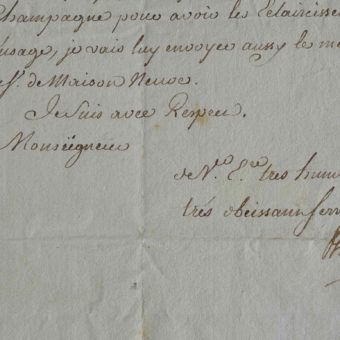 Champagne pour avoir les Eclaircisse
usage, je vais luy envoyer aussy le me
Sr. de Maison Neuve.
Je suis avec Respect.
Monseigneur
de V.re E.ce tres hum
trés obeissant serv